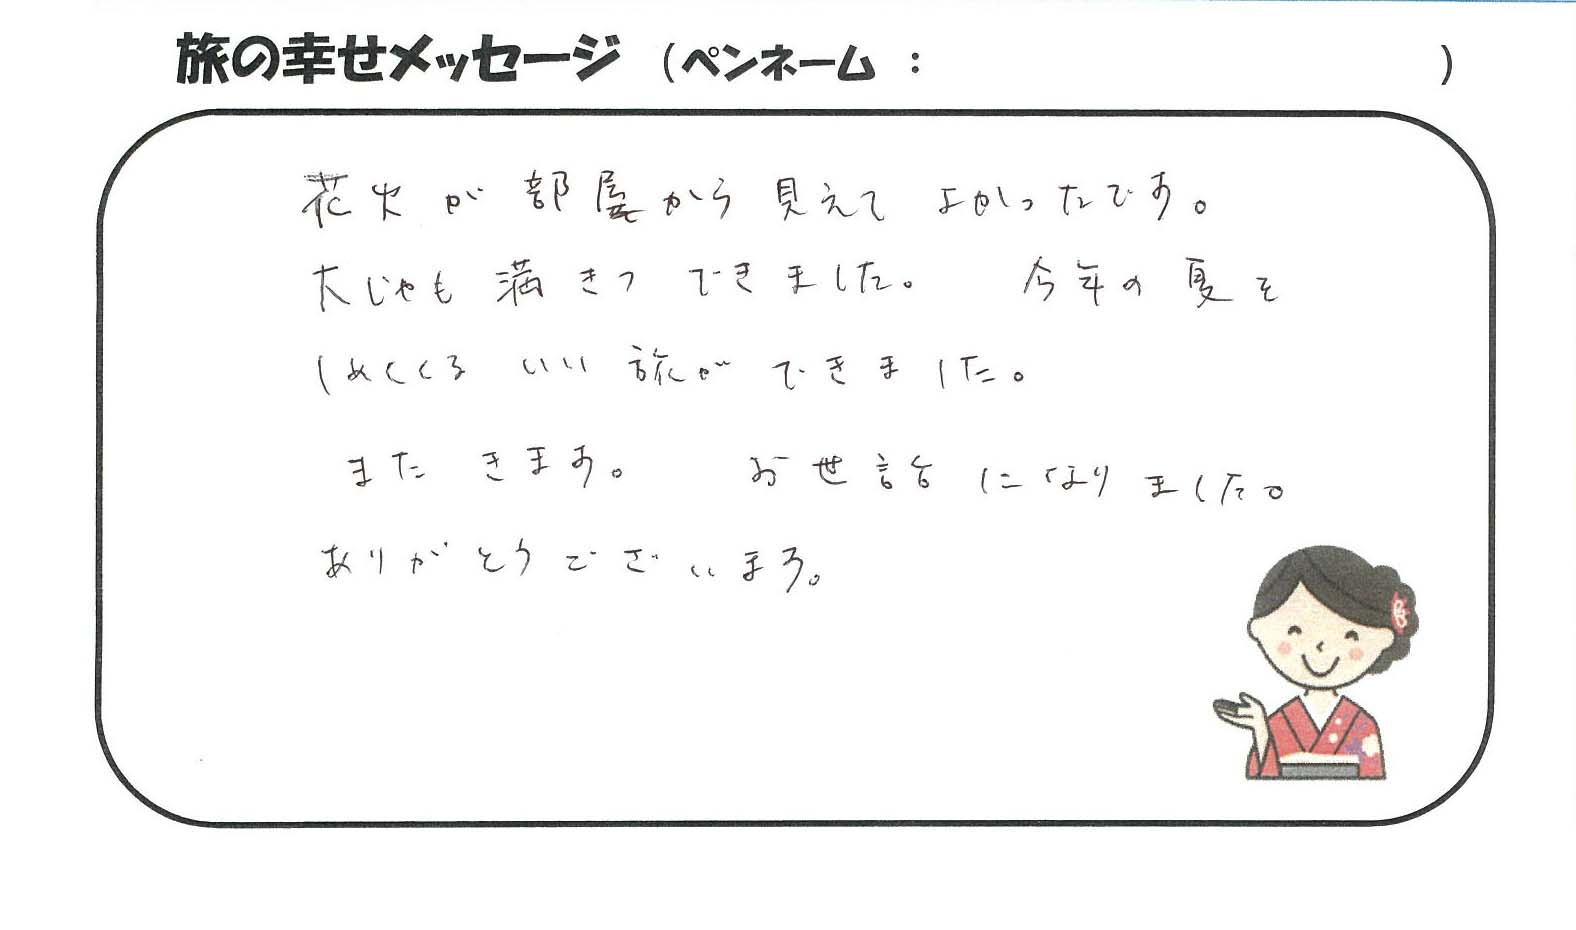 旅の幸せメッセージ （ペンネーム：　　　　）
花火が部屋から見えてよかったです。
大じゃも満きつできました。　今年の夏を
しめくくるいい旅ができました。
またきます。　お世話になりました。
ありがとうございまる。